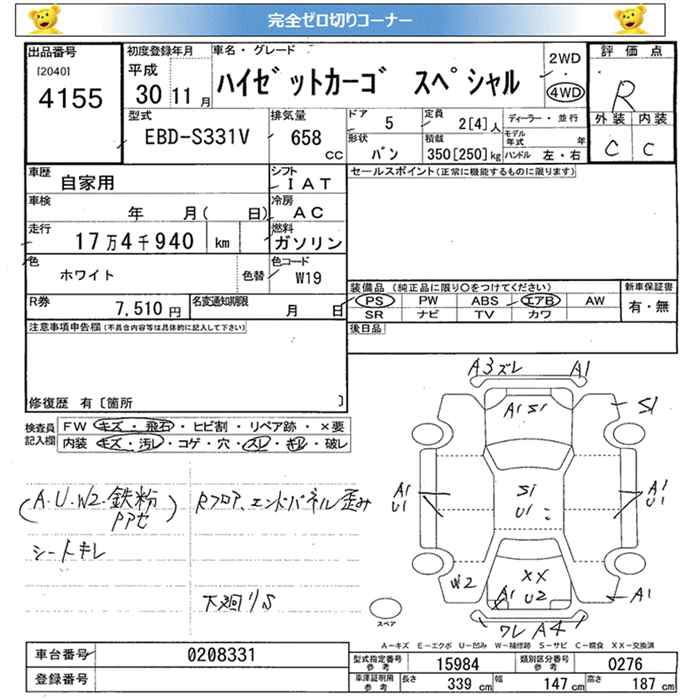 完全ゼロ切りコーナー
出品番号
[2040]
4155
初度登録年月
平成
30 11月
車名・グレード
ハイゼットカーゴ スペシャル
2WD
・
4WD
評価点
R
外装 内装
C C
型式
EBD-S331V
排気量
658
CC
ドア
5
定員
2[4]人
ディーラー・並行
モデル年式 年
形状
バン
積載
350[250]kg
ハンドル 左・右
車歴
自家用
シフト
IAT
セールスポイント(正常に機能するものに限ります)
車検
年 月( 日)
冷房
AC
走行
17万4千940 km
燃料
ガソリン
色
ホワイト
色替
色コード
W19
装備品(純正品に限り○をつけてください)
新車保証書
PS PW ABS エアB AW
有・無
SR ナビ TV カワ
R券
7,510円
名変通知期限
月 日
後日品
注意事項申告欄(不具合内容等は具体的に記入して下さい)
修復歴 有〔箇所 〕
検査員記入欄
FW キズ・飛石・ヒビ割・リペア跡・×要
内装 キズ・汚レ・コゲ・穴・スレ・キレ・破レ
(A.U.W2.鉄粉
PPセ)
Rフロア、エンドパネル歪み
シートキレ
下廻りS
A3ズレ A1
A1 S1
S1
A1
U1
S1
U1
A1
U1
W2
XX
A1 U2
A1
ワレ A4
スペア
A-キズ E-エクボ U-凹み W-補修跡 S-サビ C-腐食 XX-交換済
車台番号
0208331
登録番号
型式指定番号
参考
15984
類別区分番号
参考
0276
車庫証明用
参考
長さ 339cm
幅 147cm
高さ 187cm